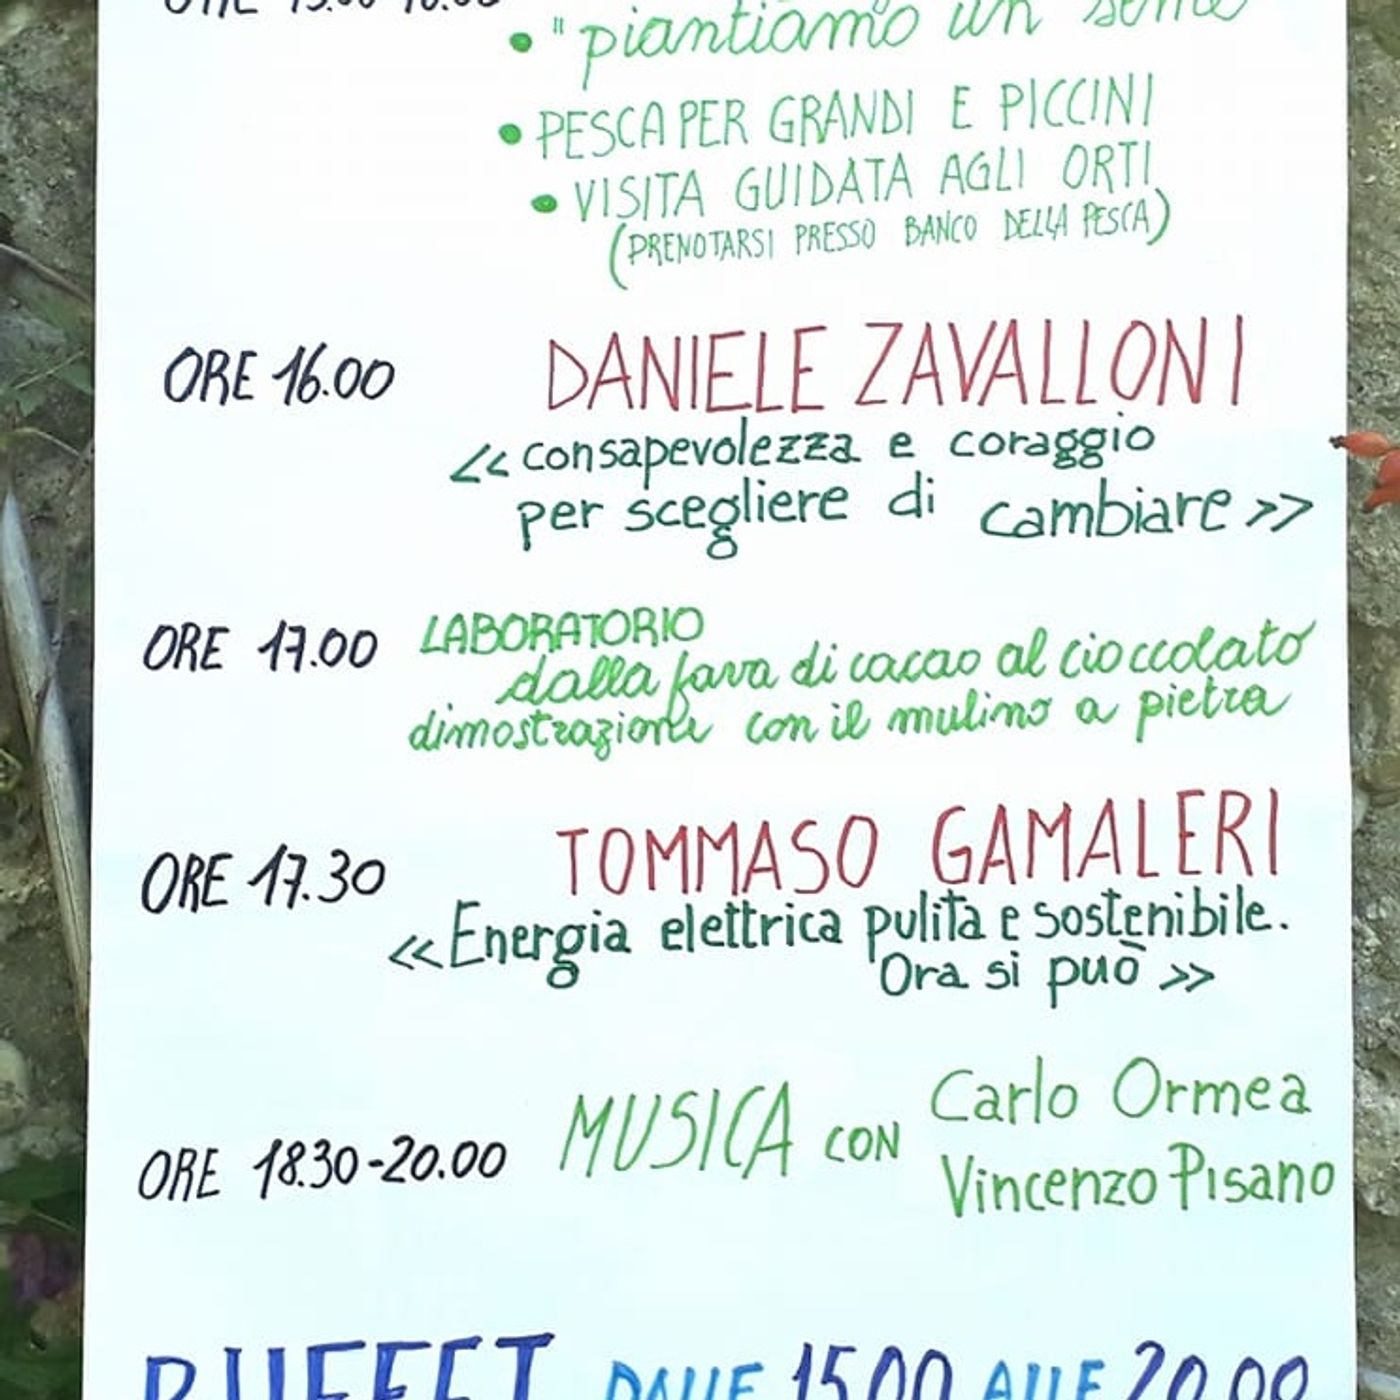 ORE 15.00-16.00
• "piantiamo un seme
• PESCA PER GRANDI E PICCINI
• VISITA GUIDATA AGLI ORTI
(PRENOTARSI PRESSO BANCO DELLA PESCA)
ORE 16.00 DANIELE ZAVALLONI
<< consapevolezza e coraggio
per scegliere di cambiare >>
ORE 17.00 LABORATORIO
dalla fava di cacao al cioccolato
dimostrazione con il mulino a pietra
ORE 17.30 TOMMASO GAMALERI
<< Energia elettrica pulita e sostenibile.
Ora si può >>
ORE 18.30-20.00 MUSICA CON Carlo Ormea
Vincenzo Pisano
BUFFET DALLE 15.00 ALLE 20.00